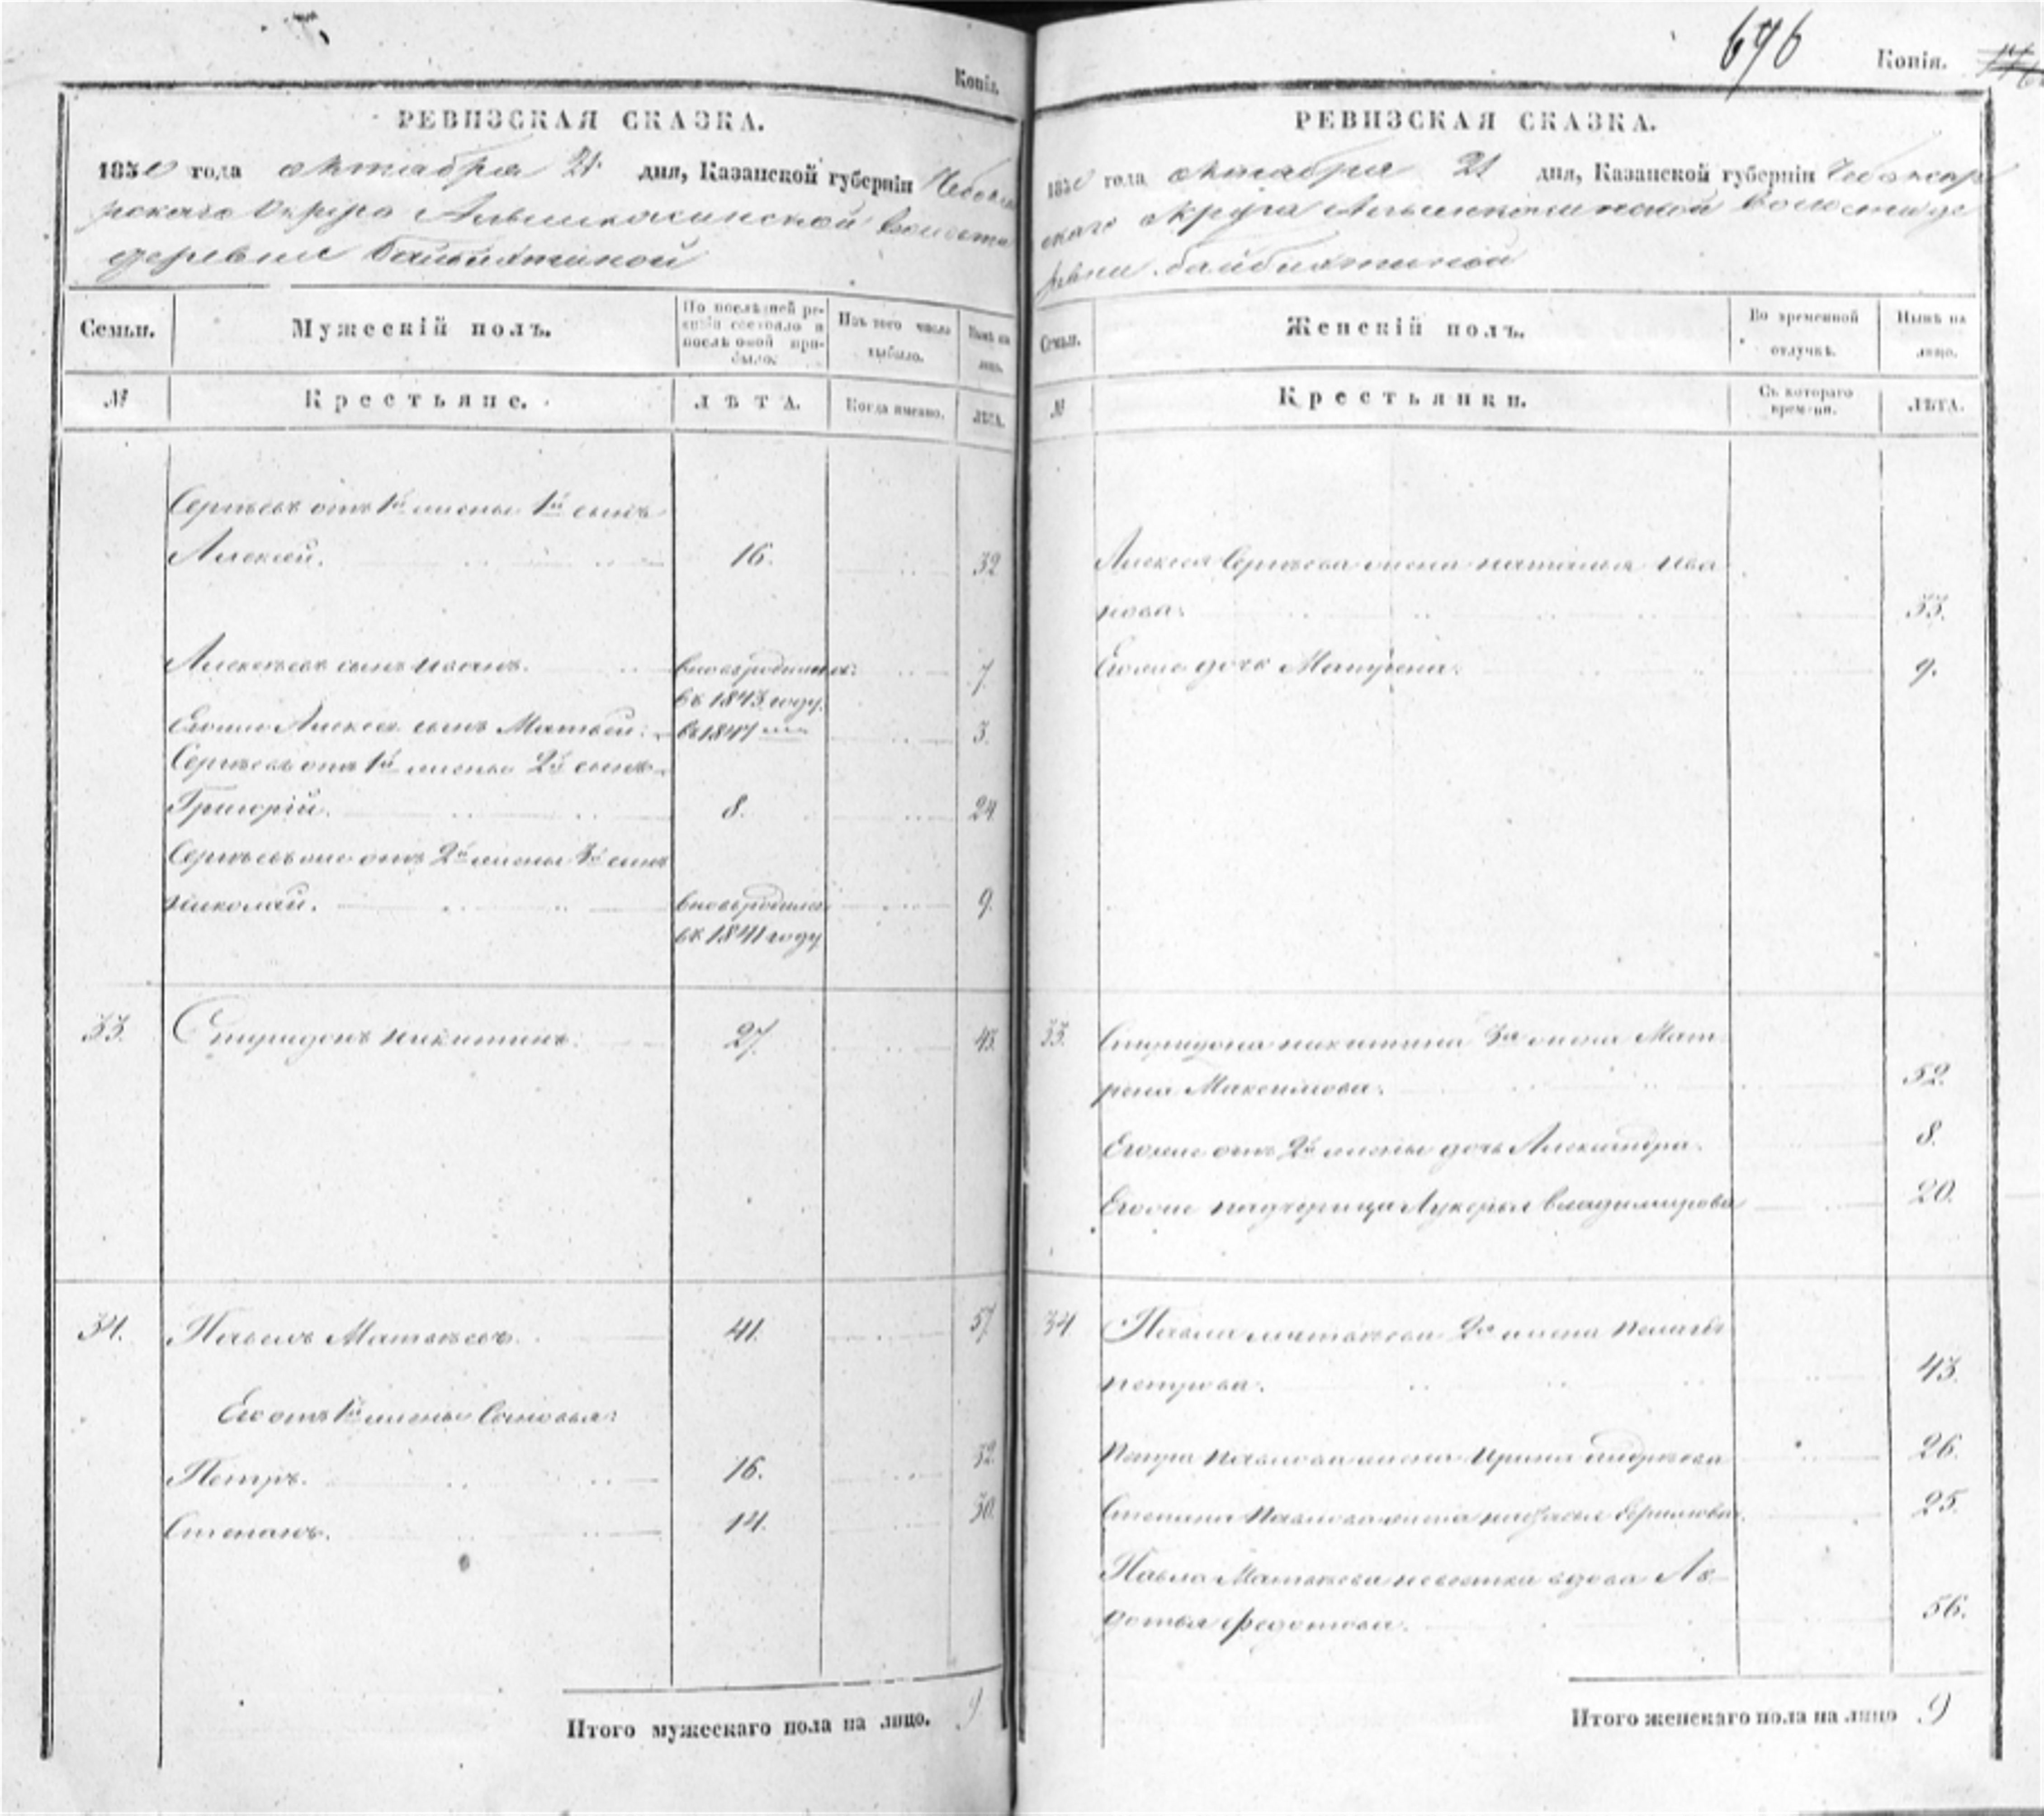 Копія.
РЕВИЗСКАЯ СКАЗКА.
1850 года октября 21 дня, Казанской губерніи Чебокса
рскаго Округа Алымкасинской волости
деревни Байбихтиной
Семьи. Мужескій полъ. По послѣдней ревизіи состояло и послѣ оной прибыло. Изъ того числа выбыло. Нынѣ на лицо.
№ Крестьяне. ЛѢТА. Когда именно. ЛѢТА.
Сергѣевъ отъ 1й жены 1й сынъ
Алексей. 16. 32
Алексѣевъ сынъ Иванъ. вновь родился 7.
въ 1843 году.
Егоже Алексея сынъ Матвей. въ 1847 3.
Сергѣевъ отъ 1й жены 2й сынъ
Григорій. 8. 24
Сергѣевъ же отъ 2й жены 3й сынъ
Николай. вновь родился 9.
въ 1841 году
33. Спиридонъ Никитинъ. 27. 43.
34. Павелъ Матвѣевъ. 41. 57
Его отъ 1й жены Сыновья:
Петръ. 16. 32.
Степанъ. 14. 30.
Итого мужескаго пола на лицо. 9
696
Копія.
РЕВИЗСКАЯ СКАЗКА.
1850 года октября 21 дня, Казанской губерніи Чебоксар
скаго Округа Алымкасинской Волости де
ревни Байбихтиной
Семьи. Женскій полъ. Во временной отлучкѣ. Нынѣ на лицо.
№ Крестьянки. Съ котораго времени. ЛѢТА.
Алексея Сергѣева жена Наталья Ива
нова. 33.
Егоже дочь Матрена. 9.
33. Спиридона Никитина 3я жена Мат
рена Максимова. 52.
Егоже отъ 2й жены дочь Александра. 8.
Егоже падчерица Лукерья Владимирова 20.
34 Павла Матвѣева 2я жена Пелагея
Петрова. 43.
Петра Павлова жена Ирина Андреева 26.
Степана Павлова жена 25.
Павла Матвѣева невестка вдова Ав
дотья Федотова. 56.
Итого женскаго пола на лицо 9